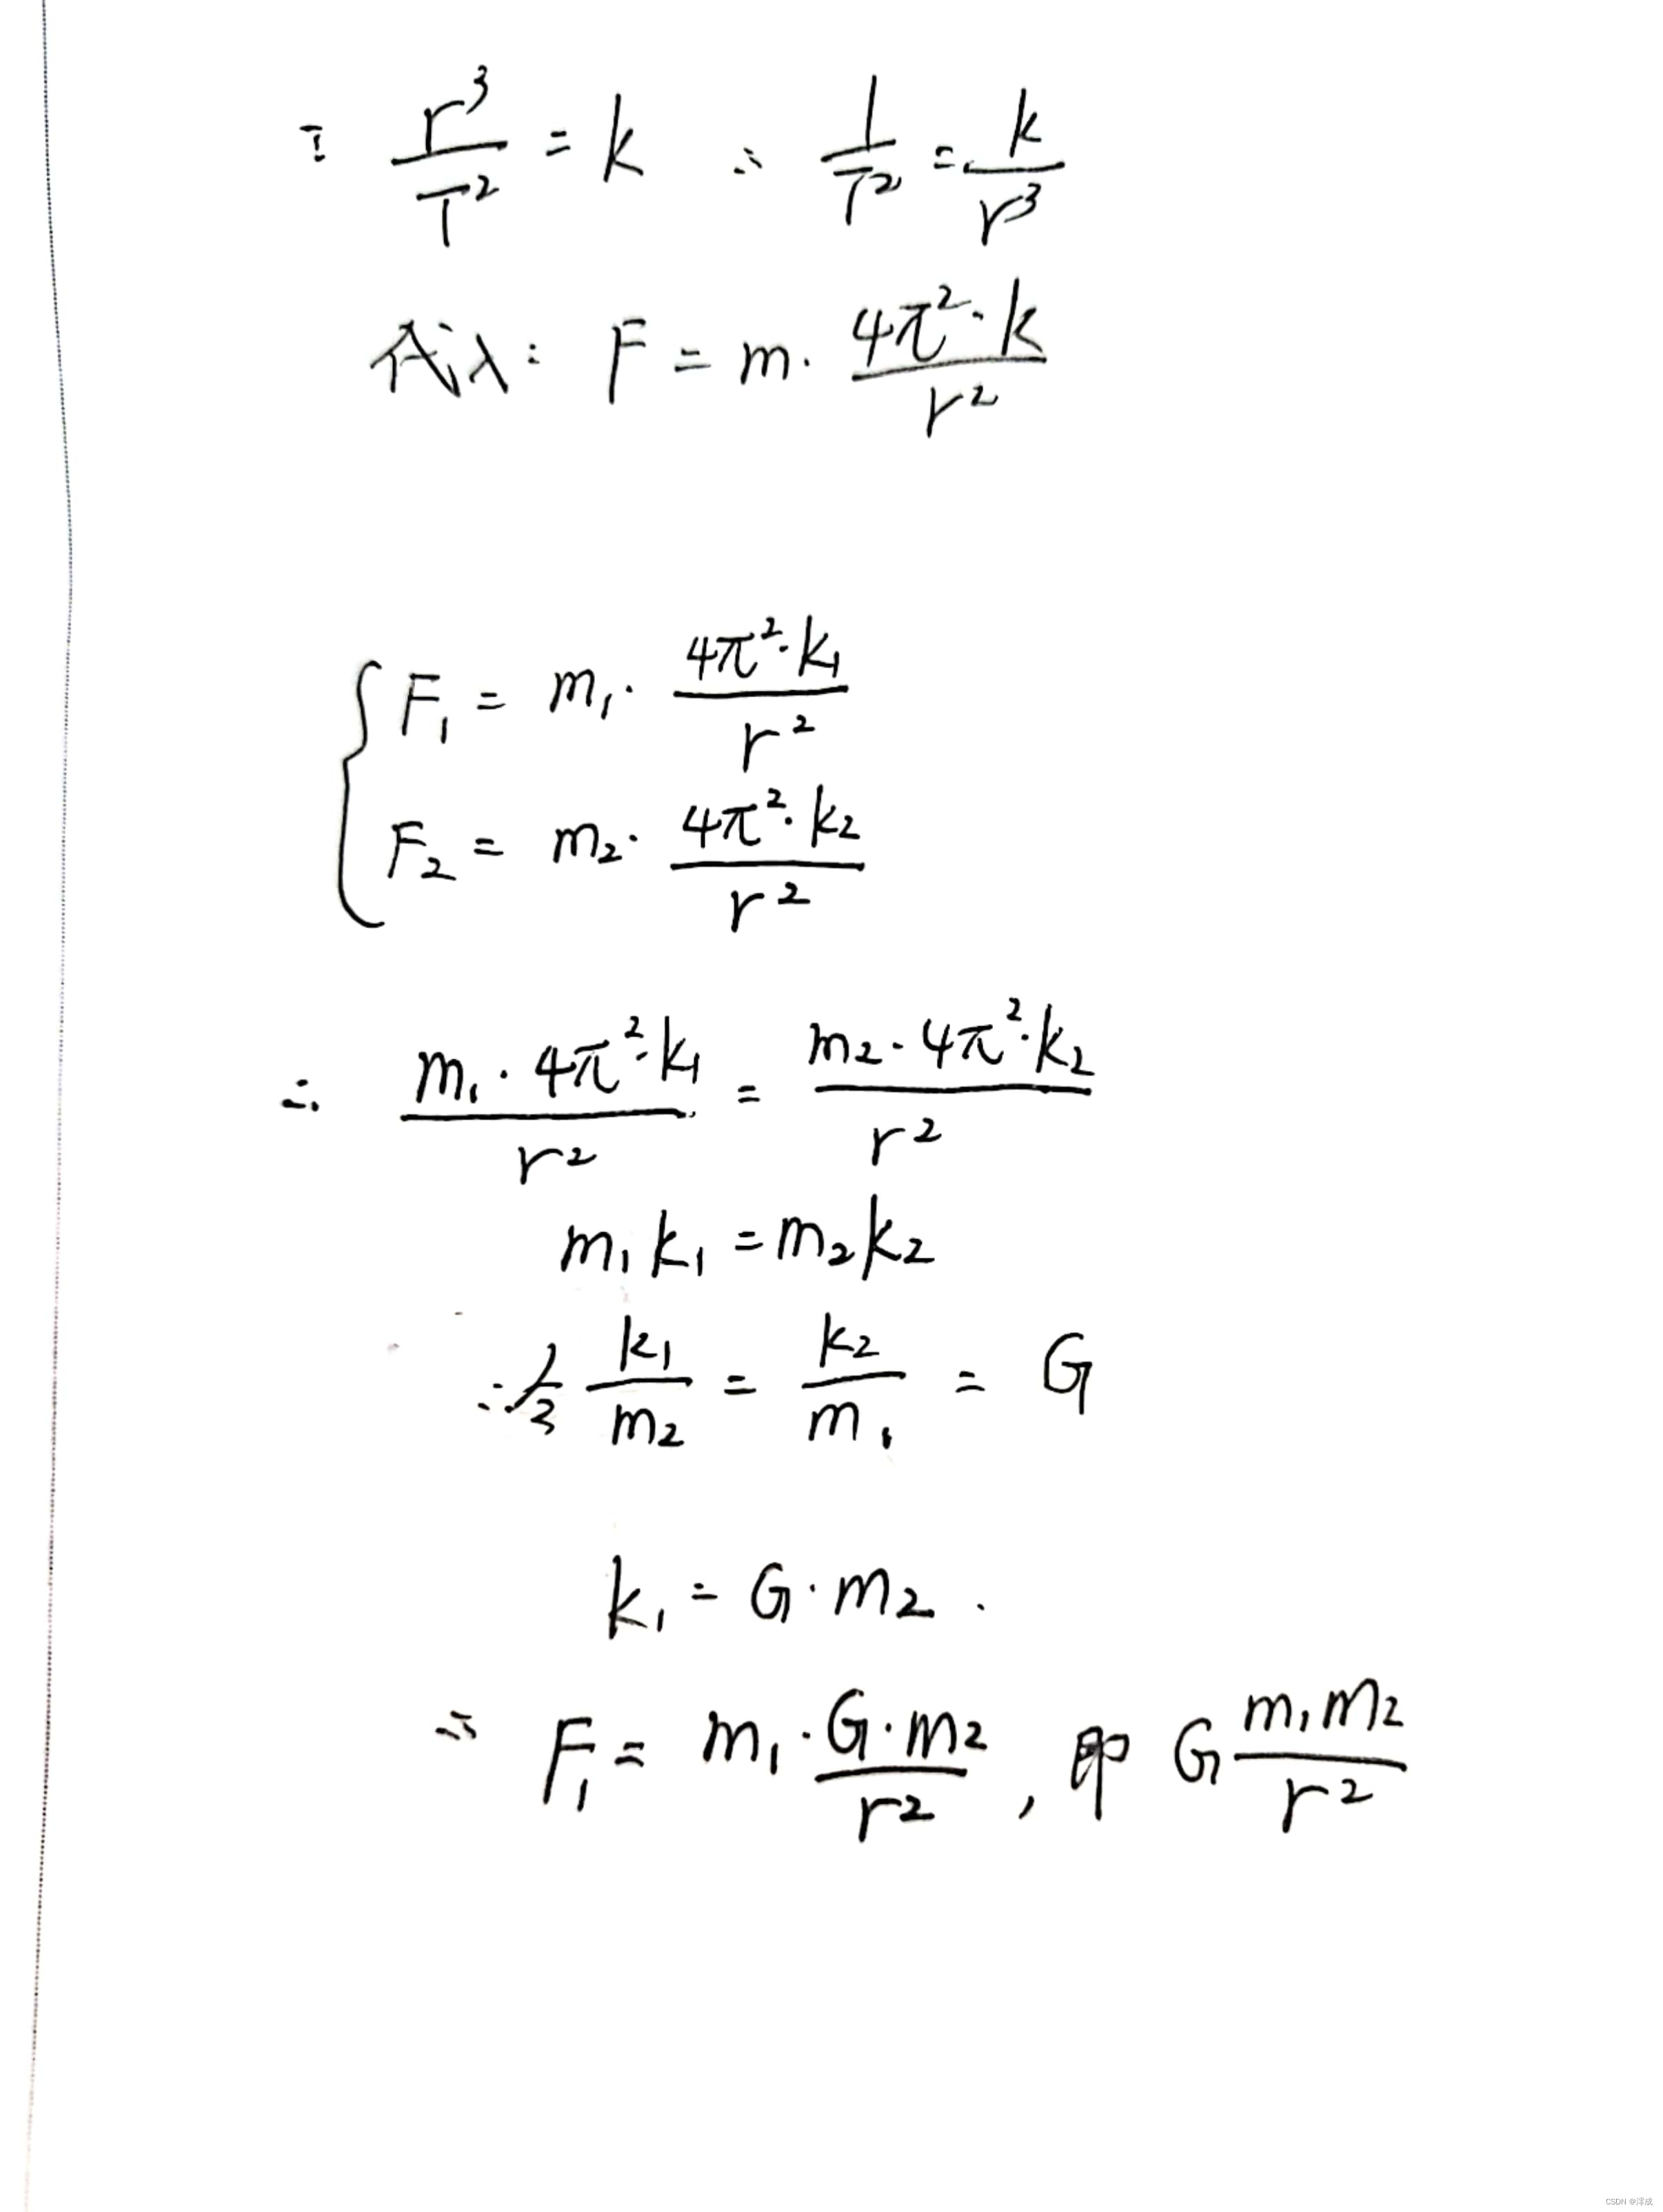 ∵ r³/T² = k ∴ 1/T² = k/r³
代入: F = m · 4π²·k/r²
F₁ = m₁ · 4π²·k₁/r²
F₂ = m₂ · 4π²·k₂/r²
∴ m₁·4π²·k₁/r² = m₂·4π²·k₂/r²
m₁k₁ = m₂k₂
∴ 令 k₁/m₂ = k₂/m₁ = G
k₁ = G·m₂.
∴ F₁ = m₁·G·m₂/r², 即 G m₁m₂/r²
CSDN @泽成